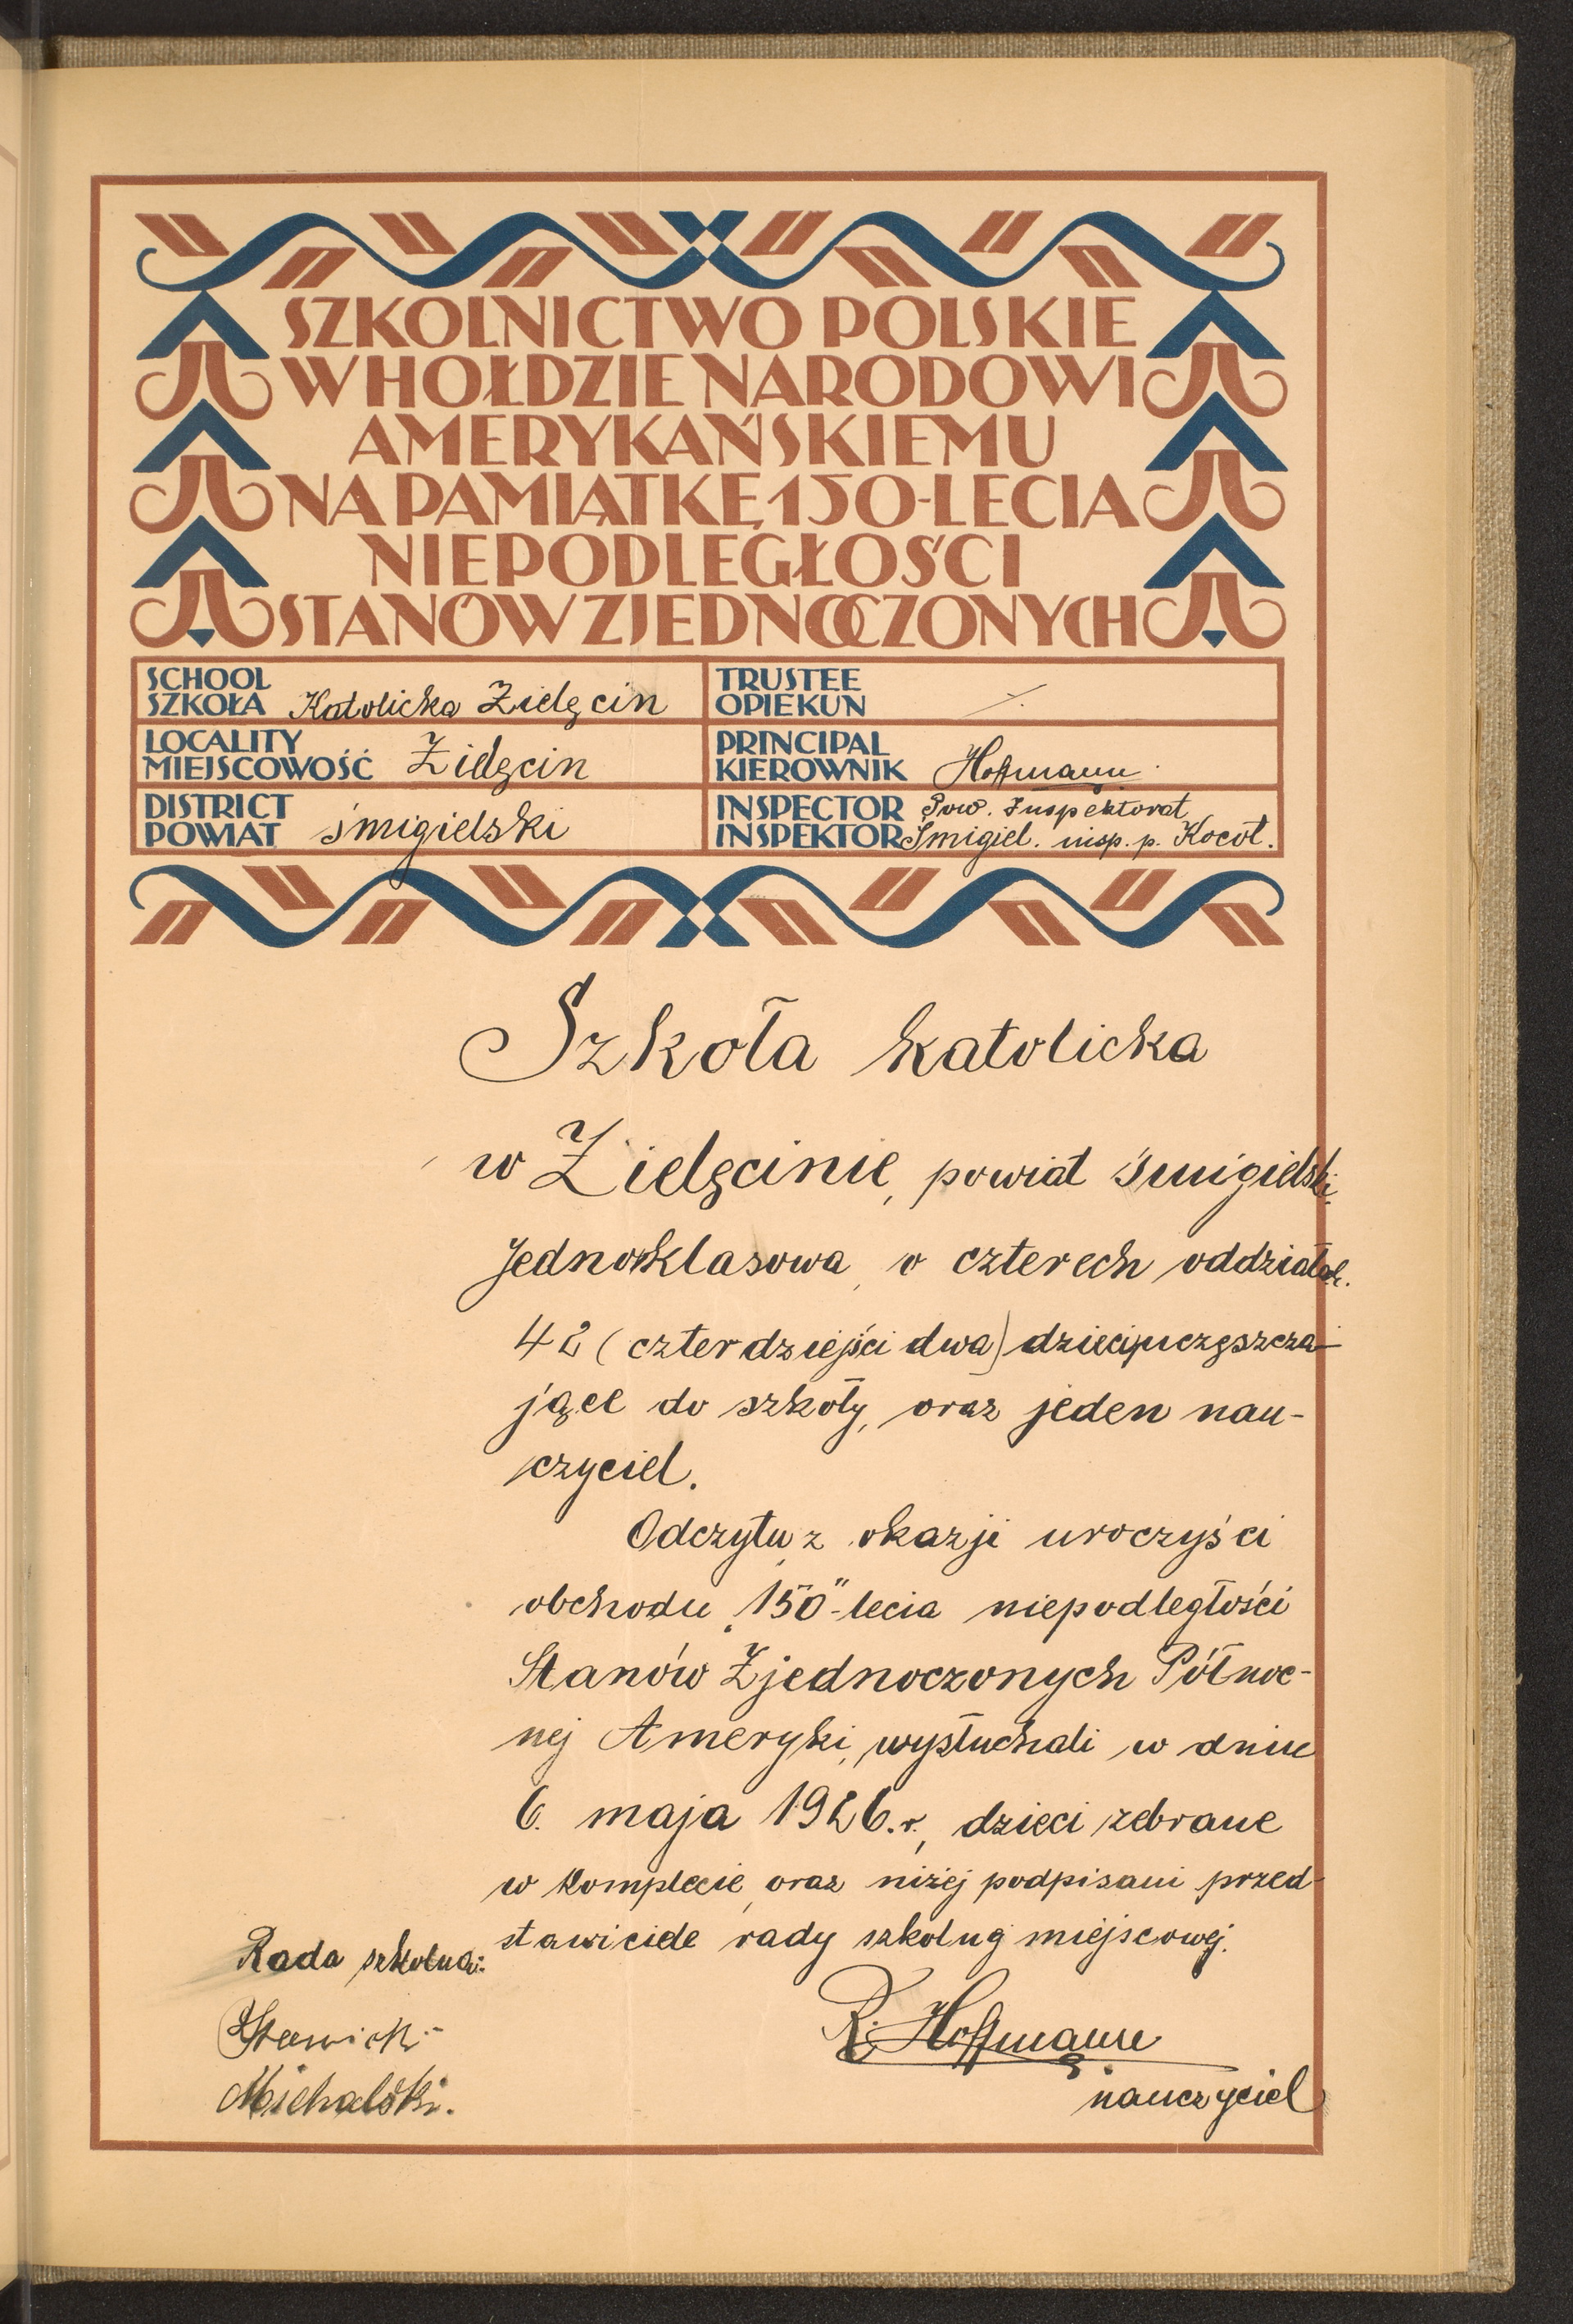 SZKOLNICTWO POLSKIE
W HOŁDZIE NARODOWI
AMERYKAŃSKIEMU
NA PAMIĄTKĘ 150-LECIA
NIEPODLEGŁOŚCI
STANÓW ZJEDNOCZONYCH
SCHOOL
SZKOŁA Katolicka Zielęcin
TRUSTEE
OPIEKUN
LOCALITY
MIEJSCOWOŚĆ Zielęcin
PRINCIPAL
KIEROWNIK Hoffmann
DISTRICT
POWIAT śmigielski
INSPECTOR Pow. Inspektorat
INSPEKTOR Śmigiel. insp. p. Kocół.
Szkoła katolicka
w Zielęcinie, powiat śmigielski,
jednoklasowa, o czterech oddziałach.
42 (czterdzieści dwa) dzieci uczęszcza-
jące do szkoły, oraz jeden nau-
czyciel.
Odczytu z okazji uroczyści
obchodu „150"-lecia niepodległości
Stanów Zjednoczonych Północ-
nej Ameryki, wysłuchali w dniu
6. maja 1926.r., dzieci zebrane
w komplecie, oraz niżej podpisani przed-
stawiciele rady szkolnej miejscowej.
Rada szkolna:
Michalski.
R. Hoffmann
nauczyciel